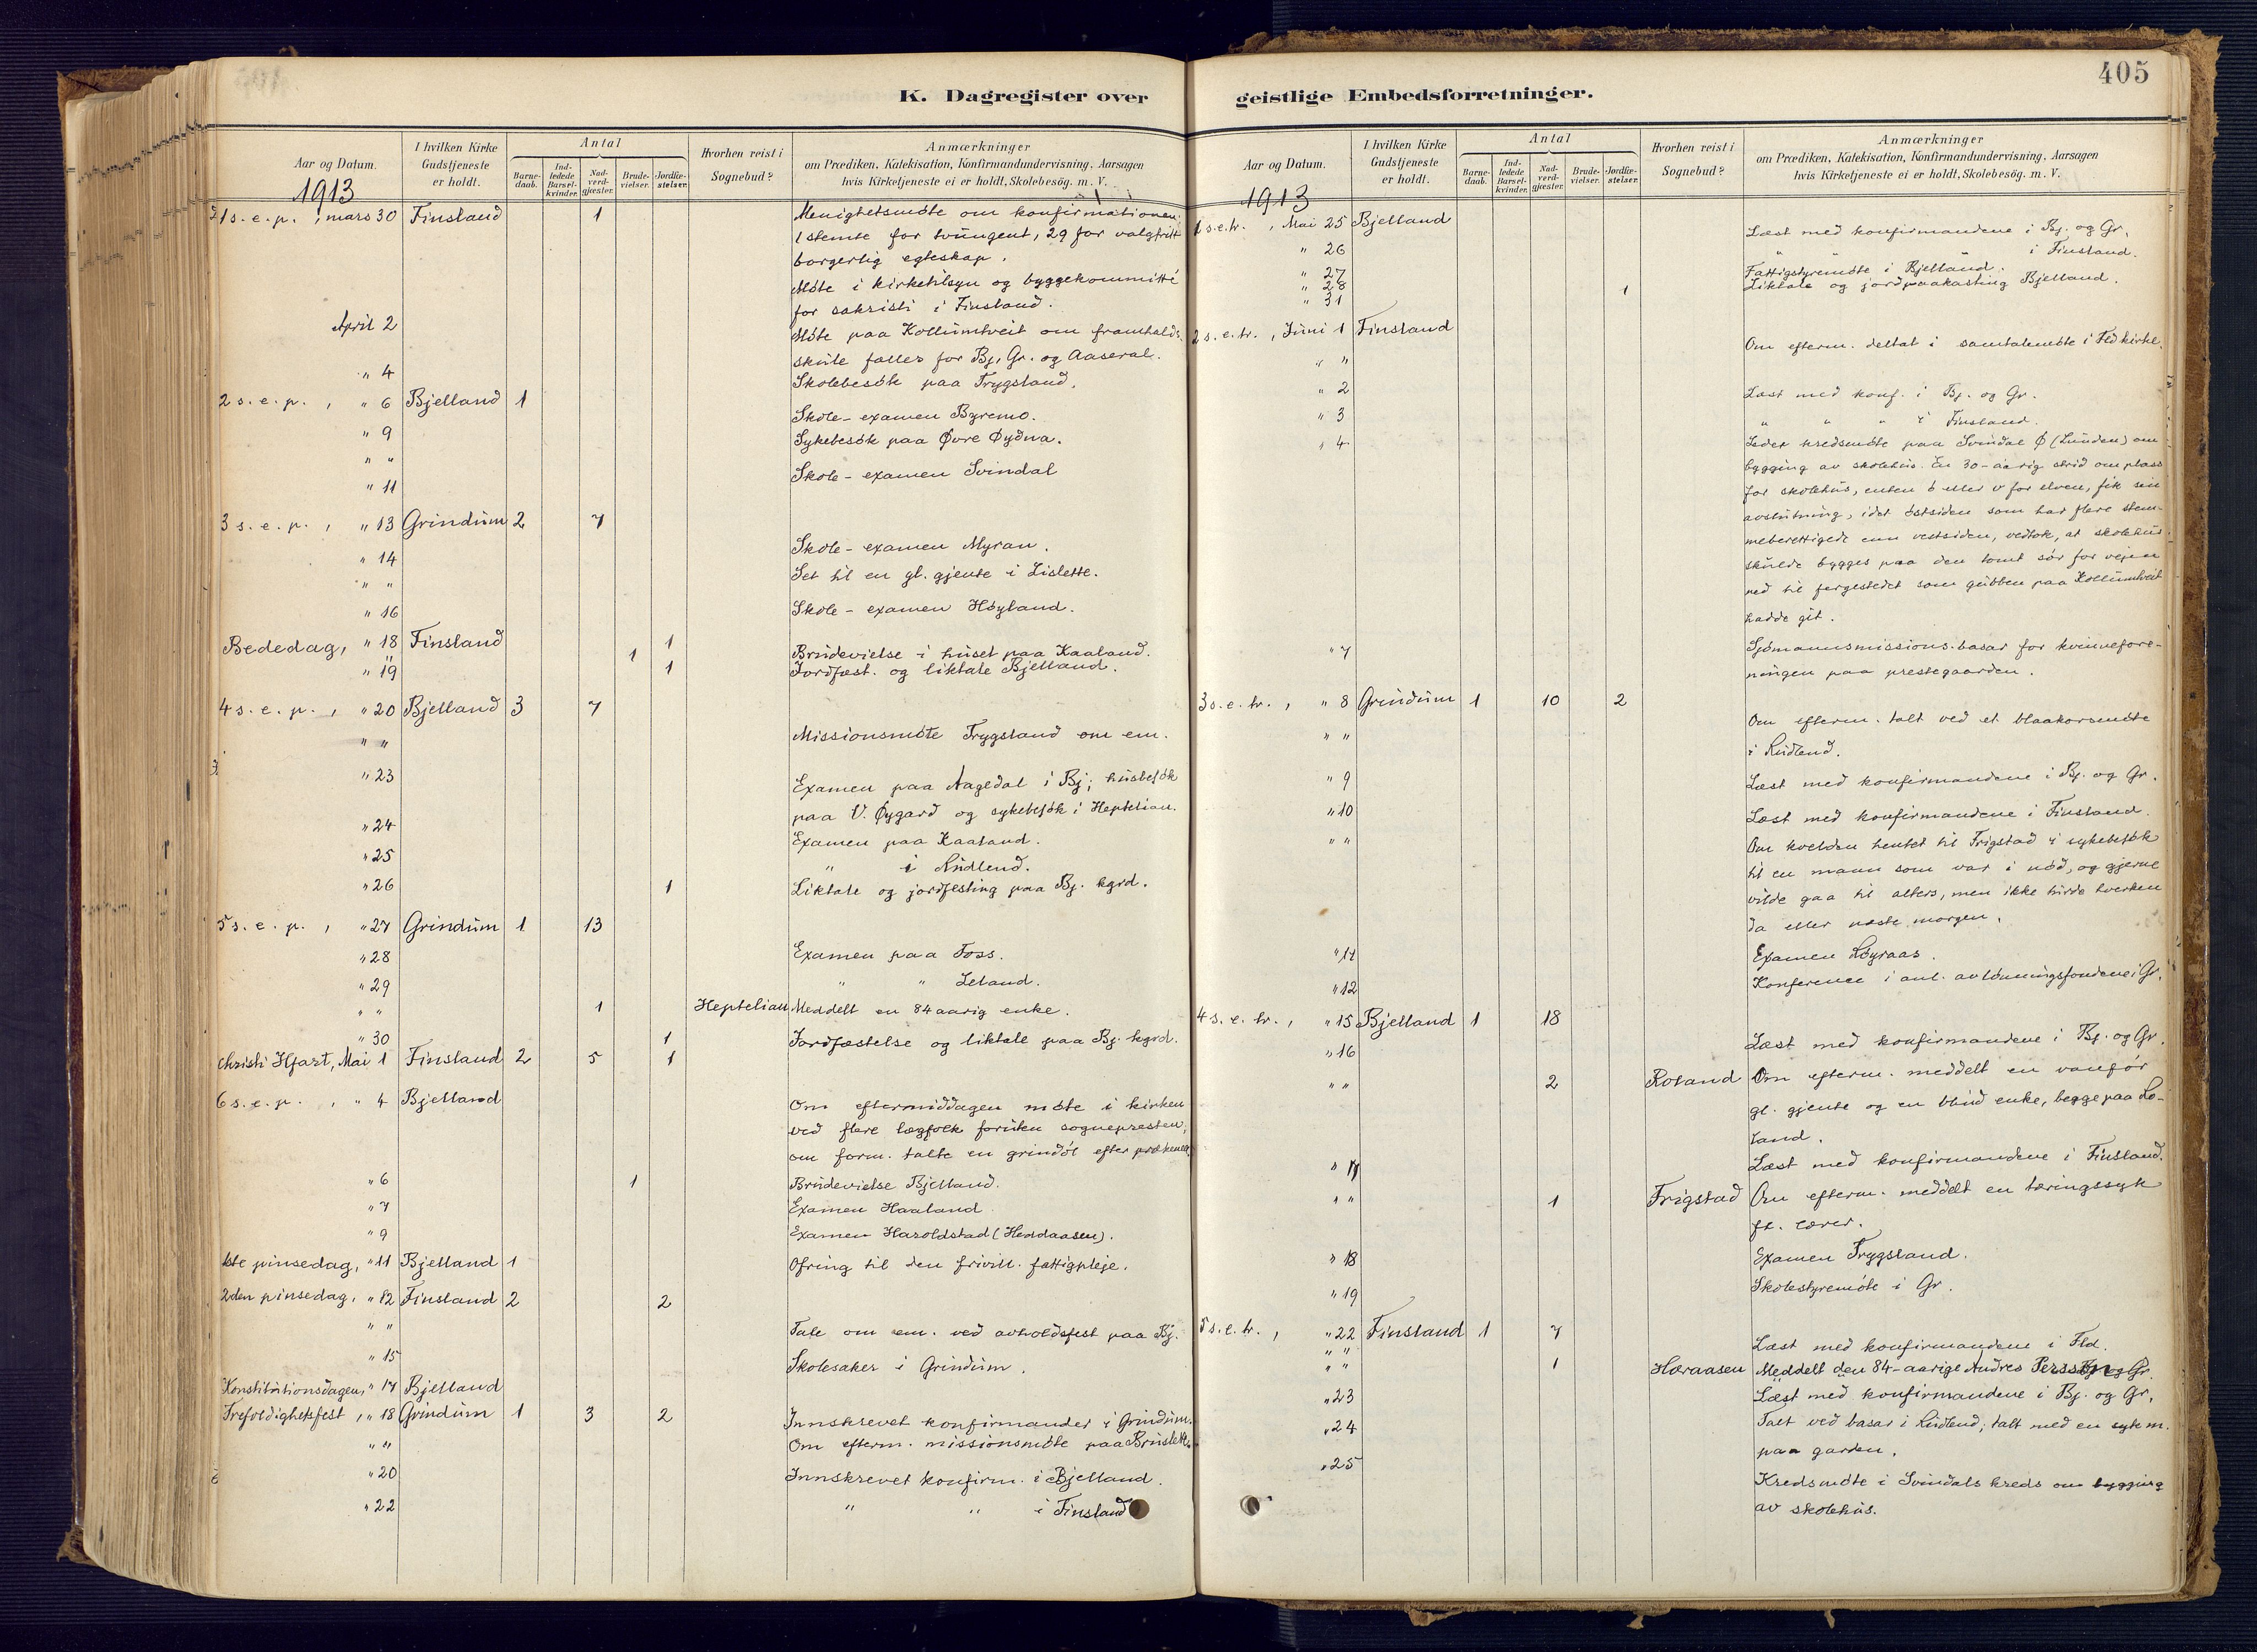 K. Dagregister over
Aar og Datum.
I hvilken Kirke Gudstjeneste er holdt.
Antal
Barnedaab.
Indledede Barselkvinder.
Nadverdgjester.
Brudevielser.
Jordfæstelser.
Hvorhen reist i Sognebud?
Anmærkninger
om Prædiken, Katekisation, Konfirmandundervisning, Aarsagen
hvis Kirketjeneste ei er holdt, Skolebesög. m. V.
1913
1 s. e. p. , mars 30 Finsland 1 Menighetsmöte om konfirmationen;
1 stemte for tvungent, 29 for valgfritt
borgerlig egteskap.
Möte i kirketilsyn og byggekommitté
for sakristi i Finsland.
April 2 Möte paa Kollumtveit om framhalds-
skule fælles for Bj., Gr. og Aaseral.
" 4 Skolebesök paa Trygsland.
2 s. e. p. , " 6 Bjelland 1
" 9 Skole-examen Byremo.
" " Sykebesök paa Øvre Øydna.
" 11 Skole-examen Svindal
3 s. e. p. , " 13 Grindum 2 7
" 14 Skole-examen Myran.
" " Set til en gl. gjente i Lislette.
" 16 Skole-examen Höyland.
Bededag, " 18 Finsland 1
" 1 Brudevielse i huset paa Kaaland.
" 19 1 Jordfæst. og liktale Bjelland.
4 s. e. p. , " 20 Bjelland 3 7
" " Missionsmöte Trygsland om em.
" 23 Examen paa Aagedal i Bj; husbesök
paa V. Øygard og sykebesök i Heptelian.
" 24 Examen paa Kaaland.
" 25 " i Rudlend.
" 26 1 Liktale og jordfesting paa Bj. kgrd.
5 s. e. p. , " 27 Grindum 1 13
" 28 Examen paa Foss.
" 29 " " Leland.
" " 1 Heptelian Meddelt en 84 aarig enke.
" 30 1 Jordfæstelse og liktale paa Bj. kgrd.
Christi Hfart, Mai 1 Finsland 2 5 1
6 s. e. p. , " 4 Bjelland
Om eftermiddagen möte i kirken
ved flere lægfolk foruten sognepresten,
om form. talte en grindöl efter prækenen.
" 6 1 Brudevielse Bjelland.
" 7 Examen Haaland.
" 9 Examen Haroldstad (Heddaasen).
1ste pinsedag, " 11 Bjelland 1 Ofring til den frivill. fattigpleje.
2den pinsedag, " 12 Finsland 2 2
" " Tale om em. ved avholdsfest paa Bj.
" 15 Skolesaker i Grindum.
Konstitutionsdagen, " 17 Bjelland
Trefoldighetsfest , " 18 Grindum 1 3 2 Innskrevet konfirmander i Grindum.
" " Om efterm. missionsmöte paa Bruslett.
" 20 Innskrevet konfirm. i Bjelland.
" 22 " " i Finsland
405
geistlige Embedsforretninger.
Aar og Datum.
I hvilken Kirke Gudstjeneste er holdt.
Antal
Barnedaab.
Indledede Barselkvinder.
Nadverdgjester.
Brudevielser.
Jordfæstelser.
Hvorhen reist i Sognebud?
Anmærkninger
om Prædiken, Katekisation, Konfirmandundervisning, Aarsagen
hvis Kirketjeneste ei er holdt, Skolebesög. m. V.
1913
1 s. e. tr. , Mai 25 Bjelland
" 26 Læst med konfirmandene i Bj. og Gr.
" 27 " " i Finsland.
" 28 Fattigstyremöte i Bjelland.
" 31 1 Liktale og jordpaakasting Bjelland.
2 s. e. tr. , Juni 1 Finsland
" " Om efterm. deltat i samtalemöte i Fld kirke.
" 2 Læst med konf. i Bj. og Gr.
" 3 " " " i Finsland.
" 4 Ledet kredsmöte paa Svindal Ø (Lunden) om
bygging av skolehus. En 30-aarig strid om plass
for skolehus, enten ö eller v for elven, fik sin
avslutning, idet östsiden som har flere stem-
meberettigede enn vestsiden, vedtok, at skolehus
skulde bygges paa den tomt sör for vejen
ned til fergestedet som gubben paa Kollumtveit
hadde git.
" 7 Sjömannsmissions-basar for kvinnefore-
ningen paa prestegaarden.
3 s. e. tr. , " 8 Grindum 1 10 2
" " Om efterm. talt ved et blaakorsmöte
i Rudlend.
" 9 Læst med konfirmandene i Bj. og Gr.
" 10 Læst med konfirmandene i Finsland.
" " Om kvelden hentet til Frigstad i sykebesök
til en mann som var i nöd, og gjerne
vilde gaa til alters, men ikke turde hverken
da eller næste morgen.
" 11 Examen Röyraas.
" 12 Konference i anl. av lönningsfondene i Gr.
4 s. e. tr. , " 15 Bjelland 1 18
" 16 Læst med konfirmandene i Bj. og Gr.
" " 2 Roland Om efterm. meddelt en vanför
gl. gjente og en blind enke, begge paa Ro-
land.
" 17 Læst med konfirmandene i Finsland.
" " 1 Frigstad Om efterm. meddelt en tæringssyk
fl. lærer.
" 18 Examen Trygsland.
" 19 Skolestyremöte i Gr.
5 s. e. tr. , " 22 Finsland 1 7
" " Læst med konfirmandene i Fld.
" " 1 Haraasen Meddelt den 84-aarige Andres
" 23 Læst med konfirmandene i Bj. og Gr.
" 24 Talt ved basar i Rudlend; talt med en syk m.
paa garden.
" 25 Kredsmöte i Svindals kreds om bygging
av skolehus.